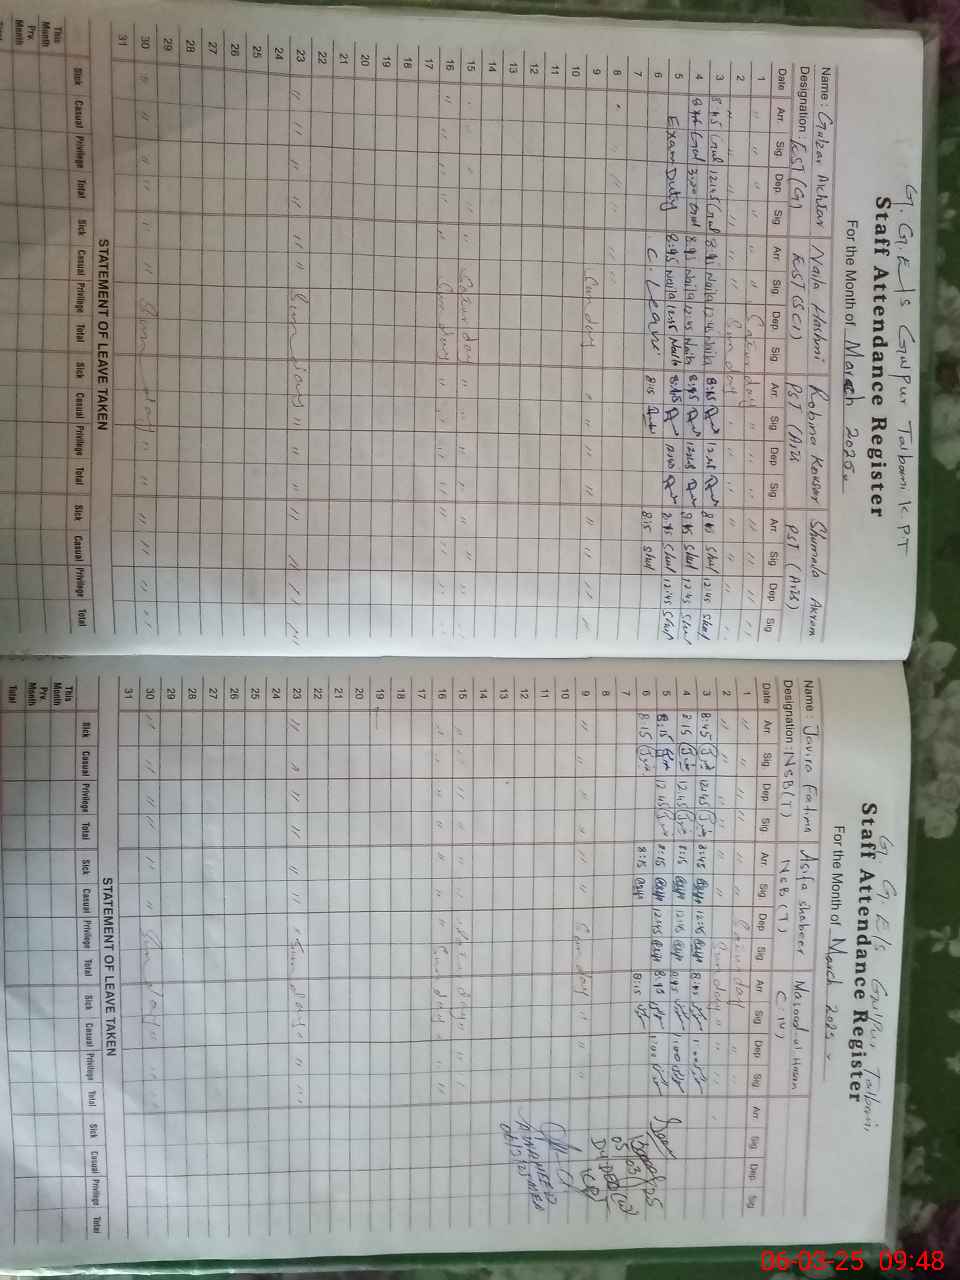 G. G. E/S Gulpur Talbani KPT
Staff Attendance Register
For the Month of March 2025
Name : Gulzar Akhtar Naila Hashmi Robina Kousar Shumaila Akram
Designation : EST (G) EST (SCI) PST (Arts) PST (Arts)
Date Arr. Sig Dep. Sig Arr. Sig Dep. Sig Arr. Sig Dep. Sig Arr. Sig Dep Sig
1 " " " " " " Saturday " " " " "
2 " " " " " Sunday " " " "
3 8:45 Gul 12:45 Gul 8:45 Naila 12:45 Naila 8:45 12:45 8:45 Shul 12:45 Shul
4 8:45 Gul 3:00 Gul 8:45 Naila 12:45 Naila 8:45 12:45 8:45 Shul 12:45 Shul
5 Exam Duty 8:45 Naila 12:45 Naila 8:45 12:45 8:45 Shul 12:45 Shul
6 C. Leave 8:15 8:15 Shul
7
8 " " " "
9 Sunday " " " " " "
10
11
12
13
14
15 " " " Saturday " " " "
16 " " " Sunday " " " "
17
18
19
20
21
22
23 " " " " " " Sunday " " " " " "
24
25
26
27
28
29
30 " " " " " " Sunday " " " " " "
31
Sick Casual Privilege Total Sick Casual Privilege Total Sick Casual Privilege Total Sick Casual Privilege Total
STATEMENT OF LEAVE TAKEN
This Month
Prv. Month
Total
G. G. E/S Gulpur Talbani,
Staff Attendance Register
For the Month of March 2025
Name : Javira Fatima Asifa Shabeer Masood ul Hassan
Designation : NSB (T) NSB (T)
Date Arr. Sig Dep. Sig Arr. Sig Dep. Sig Arr. Sig Dep. Sig Arr. Sig Dep. Sig
1 " " " " " " Saturday " "
2 " " " " " " Sunday " " "
3 8:45 12:45 8:45 12:45 8:45 1:00
4 8:15 12:45 8:15 12:45 8:45 1:00
5 8:15 12:45 8:15 12:45 8:45 1:00
6 8:15 8:15 8:15
7
8
9 " " " " " " Sunday " "
10
11
12
13
14
15 " " " " " Saturday " " "
16 " " " " " " Sunday " " "
17
18
19
20
21
22
23 " " " " " " Sunday " " "
24
25
26
27
28
29
30 " " " " " Sunday " " "
31
Sick Casual Privilege Total Sick Casual Privilege Total Sick Casual Privilege Total Sick Casual Privilege Total
STATEMENT OF LEAVE TAKEN
This Month
Prv. Month
Total
05/03/25
06/3/25
06-03-25 09:48